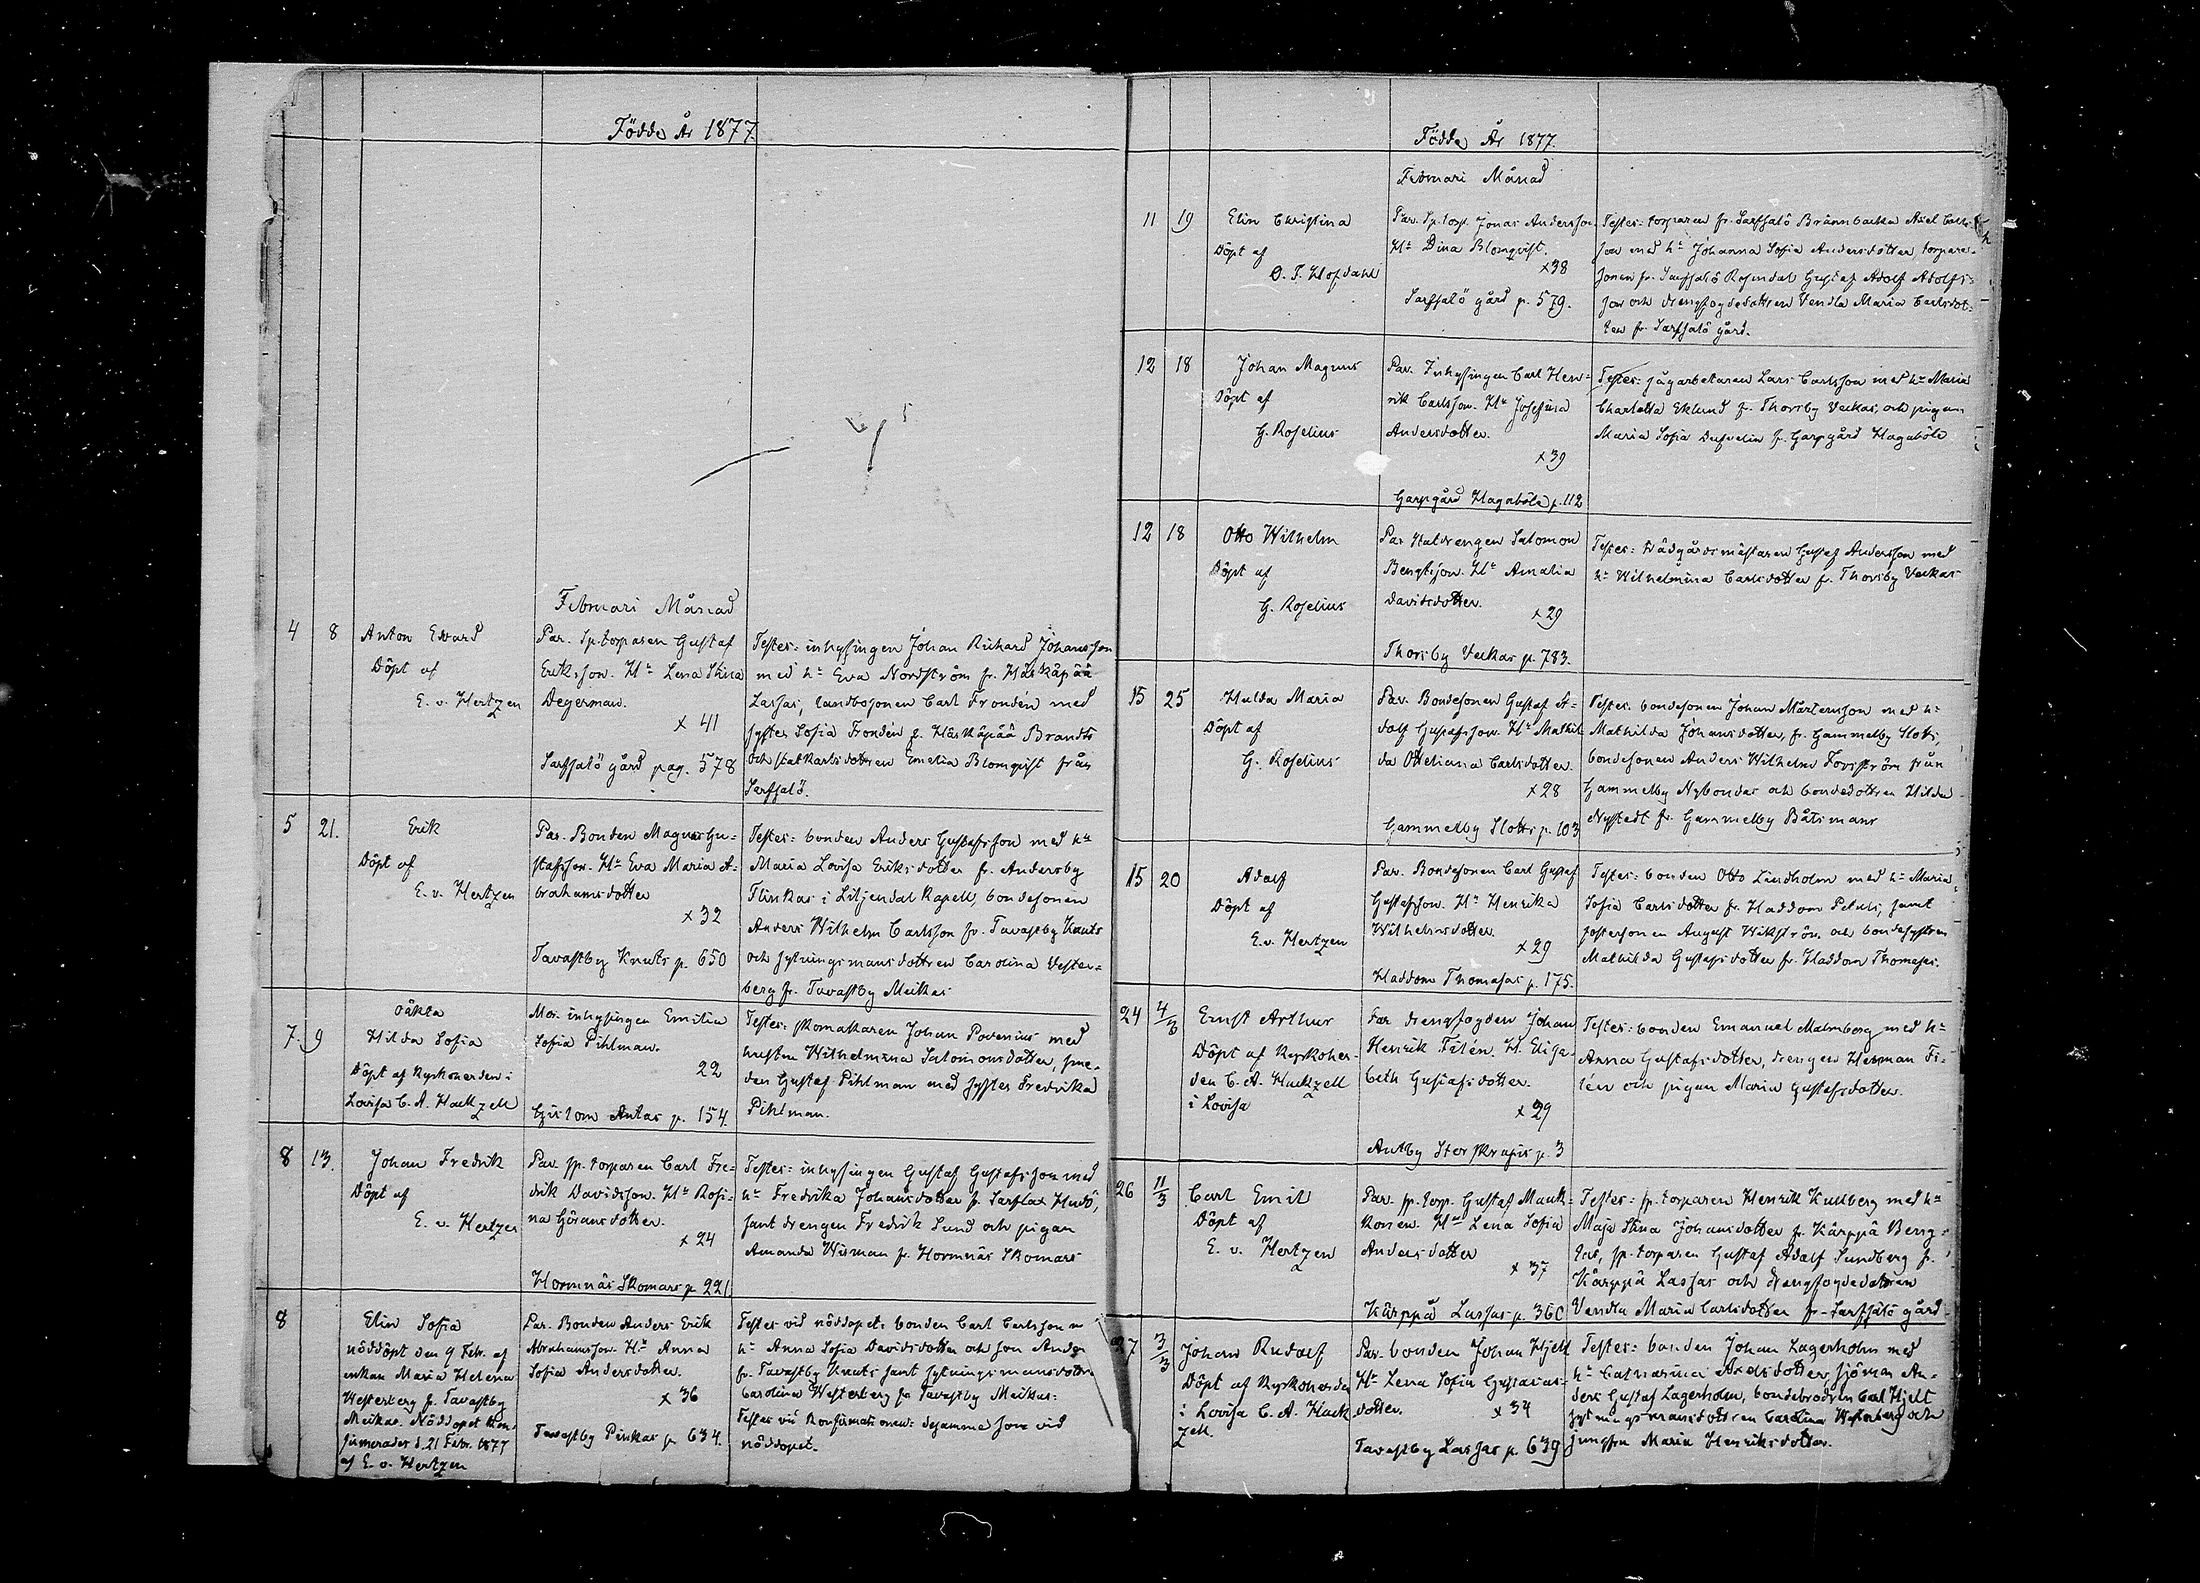 Födde År 1877.
Februari Månad
4 8 Anton Edvard
Döpt af
E. v. Hertzen
Par. Sp. torparen Gustaf
Eriksson. Hu Lena Stina
Degerman.
x 41
Sarfsalö gård pag. 578
Testes: inhysingen Johan Richard Johansson
med hu Eva Nordström fr. Härkäpää
Lassas, landbosonen Carl Frondén med
syster Sofia Frondén fr. Härkäpää Brandts
och statkarlsdottren Emelia Blomqvist från
Sarfsalö.
5 21. Erik
Döpt af
E. v. Hertzen
Par. Bonden Magnus Gu=
stafsson. Hu Eva Maria A-
brahamsdotter
x 32
Tavastby Knuts p. 650
Testes: bonden Anders Gustafsson med hu
Maria Lovisa Eriksdotter fr. Andersby
Flinkas i Liljendal Kapell, bondesonen
Anders Wilhelm Carlsson fr. Tavastby Knuts
och sytningsmansdottren Carolina Vester=
berg fr. Tavastby Meikas
7. 9 oäkta
Hilda Sofia
Döpt af Kyrkoherden i
Lovisa C. A. Hackzell
Mor. inhysingen Emilia
Sofia Pihlman.
22
Gislom Antas p. 154.
Testes: skomakaren Johan Povenius med
hustru Wilhelmina Salomonsdotter, sme-
den Gustaf Pihlman med syster Fredrika
Pihlman.
8 13. Johan Fredrik
Döpt af
E. v. Hertzen
Par. sp. torparen Carl Fre=
drik Davidsson. Hu Rosi=
na Göransdotter.
x 24
Hormnäs Skomars p. 221.
Testes: inhysingen Gustaf Gustafsson med
hu Fredrika Johansdotter fr. Sarflax Hudö,
samt drengen Fredrik Sund och pigan
Amanda Wisman fr. Hormnäs Skomars
8 Elin Sofia
nöddöpt den 9 Febr. af
enkan Maria Helena
Westerberg fr. Tavastby
Meikas. Nöddopet kon-
firmerades d. 21 Febr. 1877
af E. v. Hertzen
Par. Bonden Anders Erik
Abrahamsson. Hu Anna
Sofia Andersdotter.
x 36
Tavastby Pinkas p. 634.
Testes vid nöddopet: bonden Carl Carlsson m
hu Anna Sofia Davidsdotter och son Anders
fr. Tavastby Knuts samt sytningsmansdottren
Carolina Westerberg fr Tavastby Meikas.
Testes vid Konfirmationen: desamme som vid
nöddopet.
Födde År 1877.
Februari Månad
11 19 Elin Christina
Döpt af
O. T. Hofdahl
Par. Sp. torp. Jonas Andersson
Hu Dina Blomqvist.
x 38
Sarfsalö gård p. 579.
Testes: torparen fr. Sarfsalö Brännbacka Axel Carls
son med hu Johanna Sofia Andersdotter, torpare-
sonen fr. Sarfsalö Rosendal Gustaf Adolf Adolfs=
son och drengfogdedottren Vendla Maria Carlsdot-
ter fr. Sarfsalö gård.
12 18 Johan Magnus
Döpt af
G. Roselius
Par. Inhysingen Carl Hen=
rik Carlsson. Hu Josefina
Andersdotter.
x 39
Garpgård Hagaböle p. 112
Testes: sågarbetaren Lars Carlsson med hu Maria
Charlotta Eklund fr. Thorsby Veckas, och pigan
Maria Sofia Dufvelin fr. Garpgård Hagaböle
12 18 Otto Wilhelm
Döpt af
G. Roselius
Par Staldrengen Salomon
Bengtsson. Hu Amalia
Davidsdotter.
x 29
Thorsby Veckas p. 783.
Testes: Trädgårdsmästaren Gustaf Andersson med
hu Wilhelmina Carlsdotter fr. Thorsby Veckas
15 25 Hulda Maria
Döpt af
G. Roselius
Par. Bondesonen Gustaf A-
dolf Gustafsson. Hu Mathil
da Otteliana Carlsdotter
x 28
Gammelby Slotts p. 103
Testes bondesonen Johan Mårtensson med hu
Mathilda Johansdotter, fr. Gammelby Slotts,
bondesonen Anders Wilhelm Forsström från
Gammelby Nybondas och bondedottren Hilda
Nystedt fr. Gammelby Båtsmans
15 20 Adolf
Döpt af
E. v. Hertzen
Par. Bondesonen Carl Gustaf
Gustafsson. Hu Henrika
Wilhelmsdotter.
x 29
Haddom Thomasas p. 175.
Testes: bonden Otto Lindholm med hu Maria
Sofia Carlsdotter fr. Haddom Pekas, samt
fostersonen August Wikström och bondesystren
Mathilda Gustafsdotter fr. Haddom Thomasas.
24 4/3 Ernst Arthur
Döpt af Kyrkoher-
den C. A. Hackzell
i Lovisa
Par drengfogden Johan
Henrik Filén. H. Elisa-
beth Gustafsdotter.
x 29
Antby Storskrapis p. 3
Testes: bonden Emanuel Malmberg med hu
Anna Gustafsdotter, drengen Herman Fi-
lén och pigan Maria Gustafsdotter.
26 11/3 Carl Emil
Döpt af
E. v. Hertzen
Par. sp. torp. Gustaf Mauk=
konen. Hu Lena Sofia
Andersdotter
x 37
Kärppä Lassas p. 360
Testes: sp. torparen Henrik Kullberg med hu
Maja Stina Johansdotter fr. Kärppä Beng=
tas, sp. torparen Gustaf Adolf Sundberg fr.
Kärppä Lassas och drengfogdedottren
Vendla Maria Carlsdotter fr. Sarfsalö gård
27 3/3 Johan Rudolf
Döpt af Kyrkoherden
i Lovisa C. A. Hack
zell.
Par. bonden Johan Hjelt
Hu Lena Sofia Gustafs-
dotter.
x 34
Tavastby Lassas p. 639
Testes: bonden Johan Lagerholm med
hu Catharina Axelsdotter, sjöman An-
ders Gustaf Lagerholm, bondebrodren Carl Hjelt
sytningsmansdottren Carolina Westerberg och
jungfru Maria Henriksdotter.